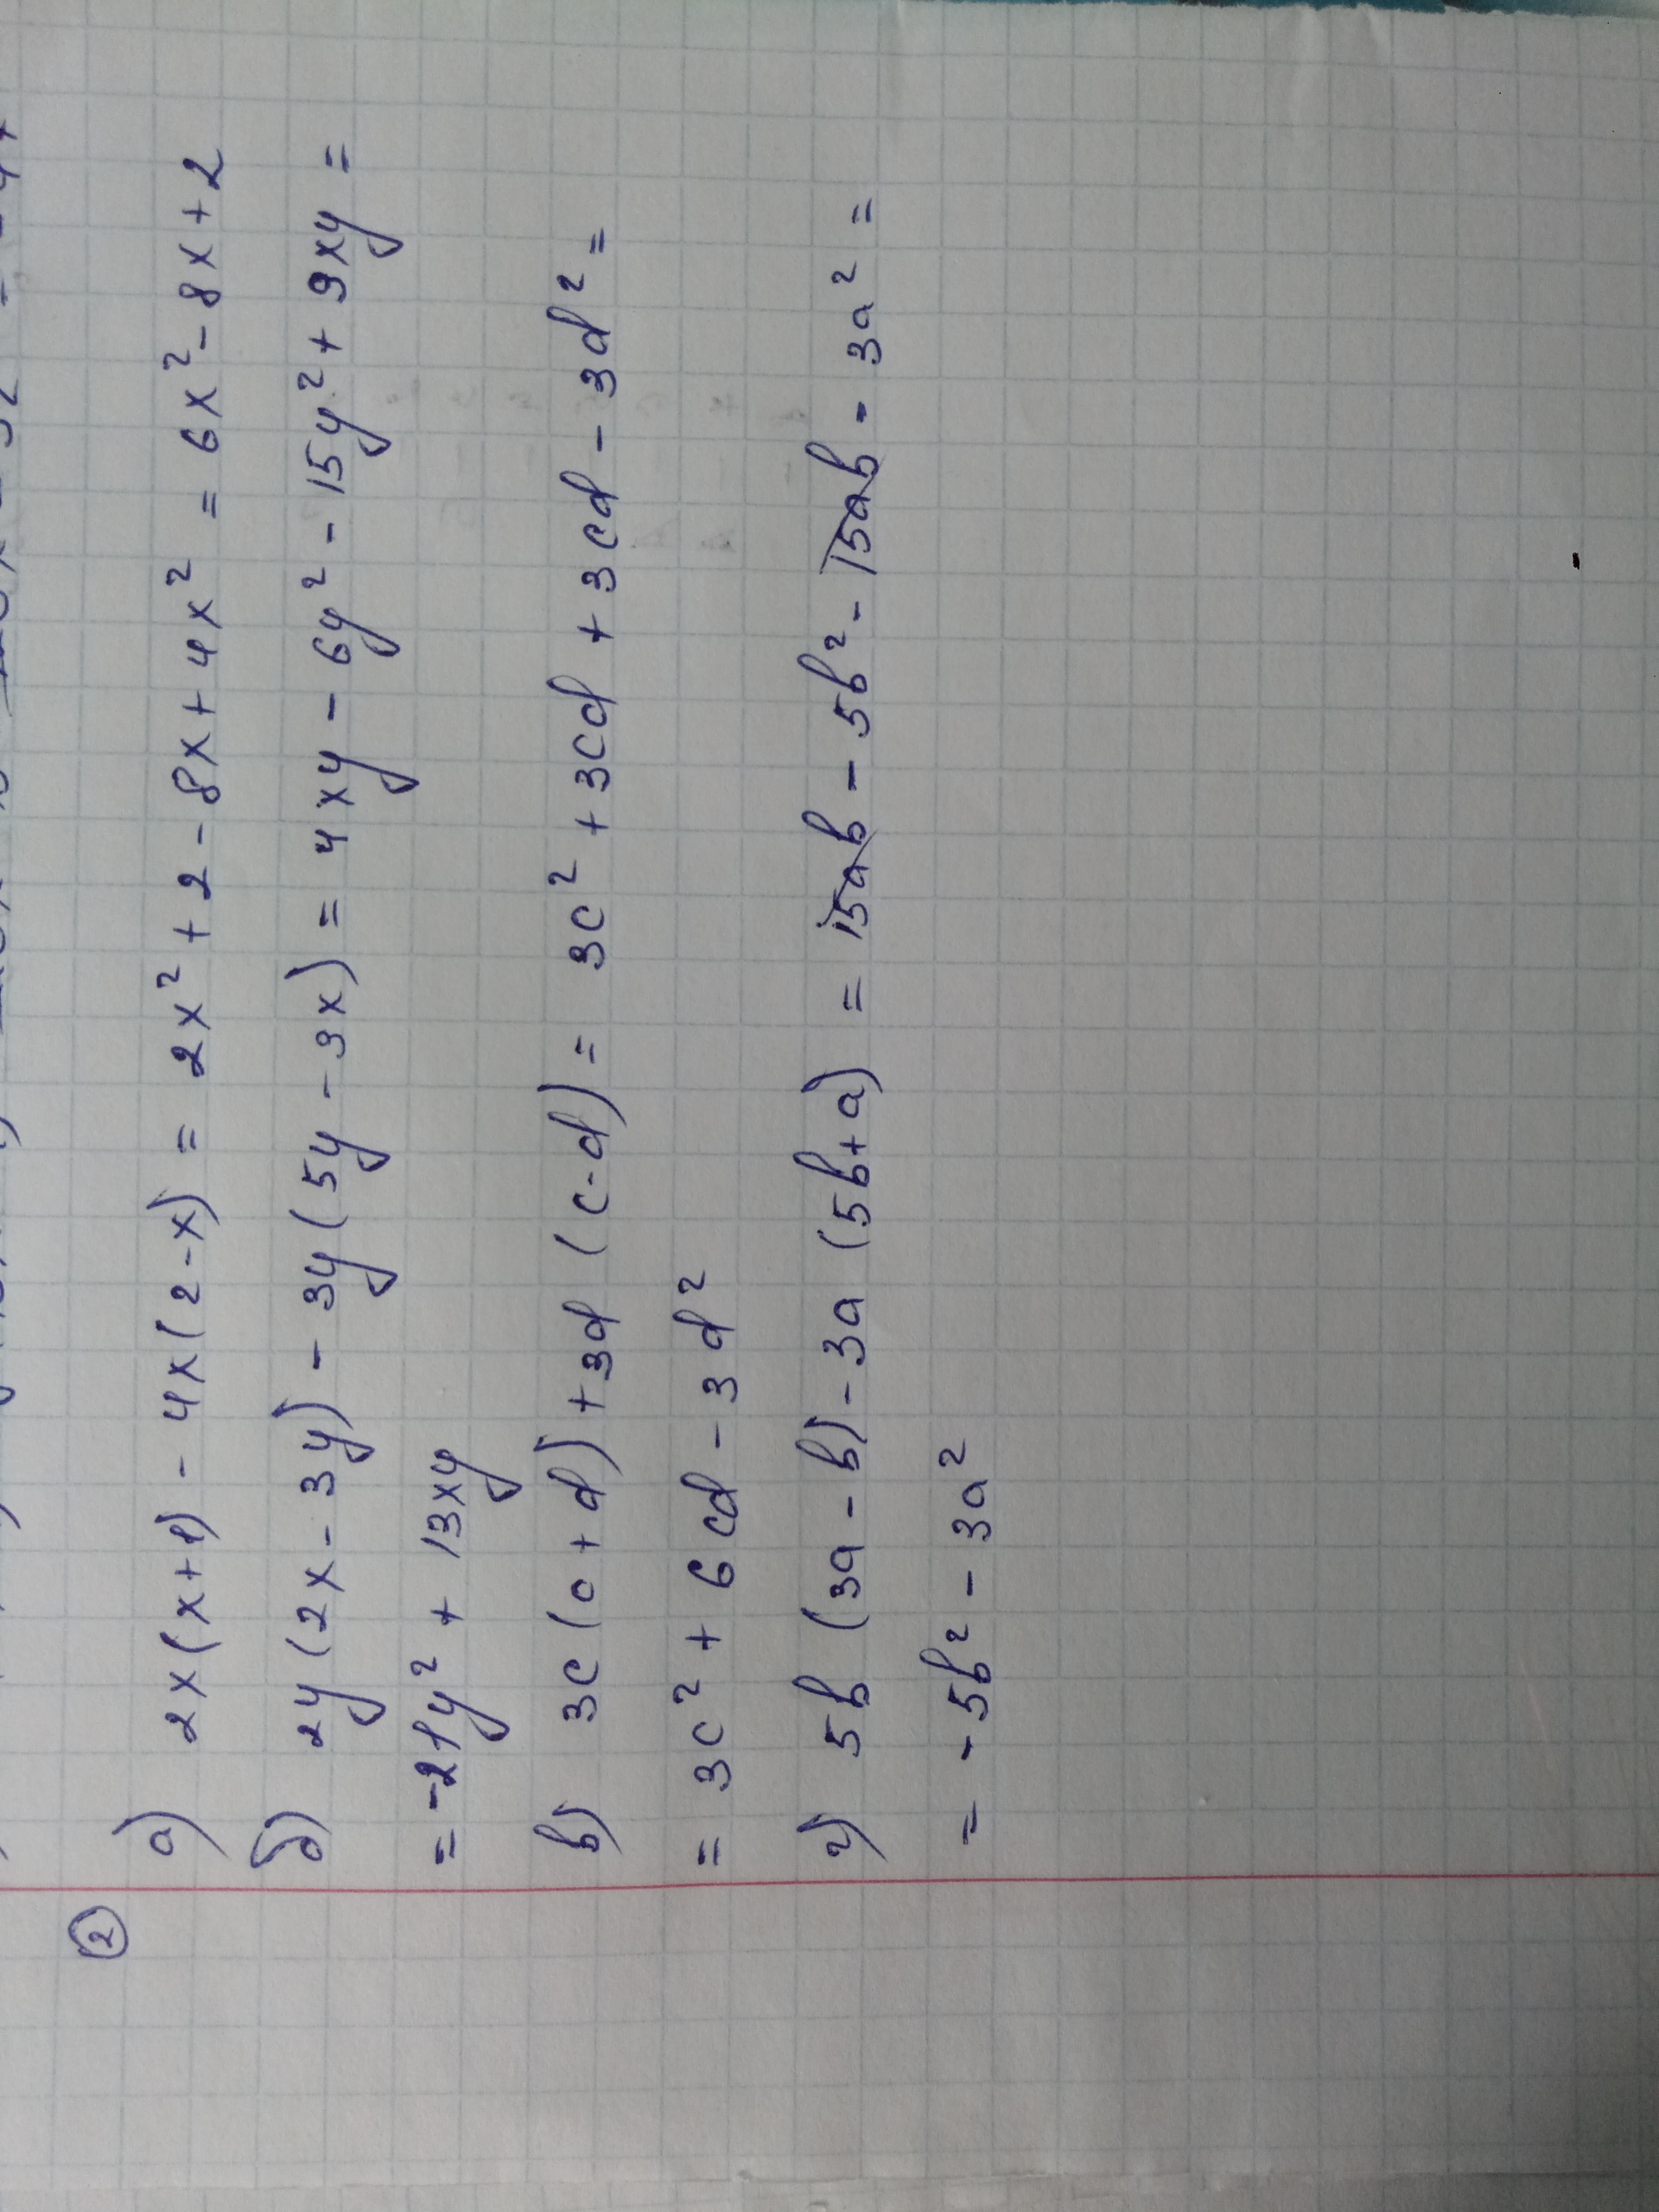 ②
а) 2x(x+1) - 4x(2-x) = 2x² + 2 - 8x + 4x² = 6x² - 8x + 2
б) 2y(2x - 3y) - 3y(5y - 3x) = 4xy - 6y² - 15y² + 9xy =
= -21y² + 13xy
в) 3c(c+d) + 3d(c-d) = 3c² + 3cd + 3cd - 3d² =
= 3c² + 6cd - 3d²
г) 5b(3a - b) - 3a(5b+a) = 15ab - 5b² - 15ab - 3a² =
= -5b² - 3a²